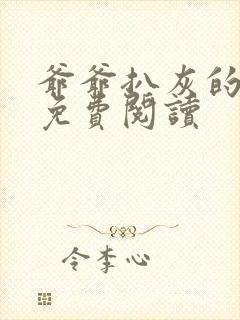 爺爺扒灰的
免費閱讀
令李心